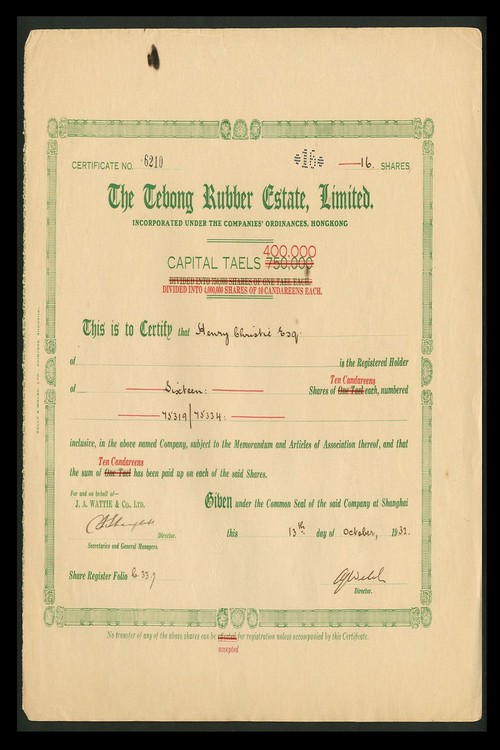 CERTIFICATE NO. 6210 *16* 16. SHARES
The Tebong Rubber Estate, Limited.
INCORPORATED UNDER THE COMPANIES' ORDINANCES, HONGKONG
400,000
CAPITAL TAELS 750,000
DIVIDED INTO 750,000 SHARES OF ONE TAEL EACH.
DIVIDED INTO 4,000,000 SHARES OF 10 CANDAREENS EACH.
This is to Certify that Henry Christie Esq.
of is the Registered Holder
Ten Candareens
of Sixteen: Shares of One Tael each, numbered
75319/75334:
inclusive, in the above named Company, subject to the Memorandum and Articles of Association thereof, and that
Ten Candareens
the sum of One Tael has been paid up on each of the said Shares.
For and on behalf of—
J. A. WATTIE & Co., LTD.
Given under the Common Seal of the said Company at Shanghai
Director.
this 13th day of October, 1932.
Secretaries and General Managers.
Share Register Folio C 337
Director.
No transfer of any of the above shares can be effected for registration unless accompanied by this Certificate.
accepted